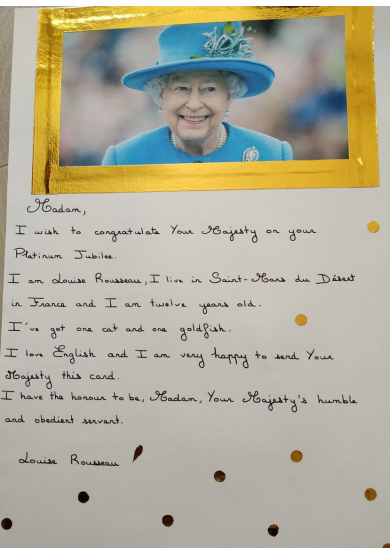 Madam,
I wish to congratulate Your Majesty on your
Platinum Jubilee.
I am Louise Rousseau, I live in Saint-Mars du Désert
in France and I am twelve years old.
I've got one cat and one goldfish.
I love English and I am very happy to send Your
Majesty this card.
I have the honour to be, Madam, Your Majesty's humble
and obedient servant.
Louise Rousseau